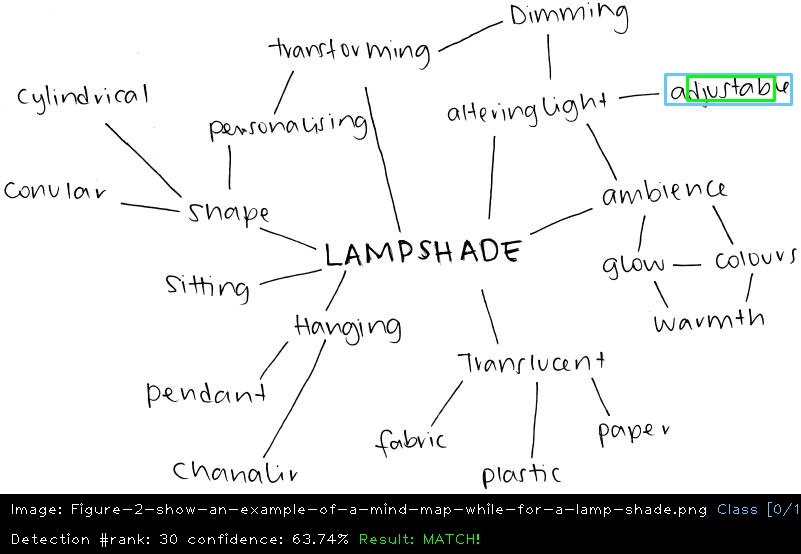 Dimming
transforming
cylindrical
adjustable
altering light
personalising
conular
shape
ambience
LAMPSHADE
glow
colours
sitting
Hanging
warmth
Translucent
pendant
fabric
paper
chanalir
plastic
Image: Figure-2-show-an-example-of-a-mind-map-while-for-a-lamp-shade.png Class [0/1
Detection #rank: 30 confidence: 63.74% Result: MATCH!